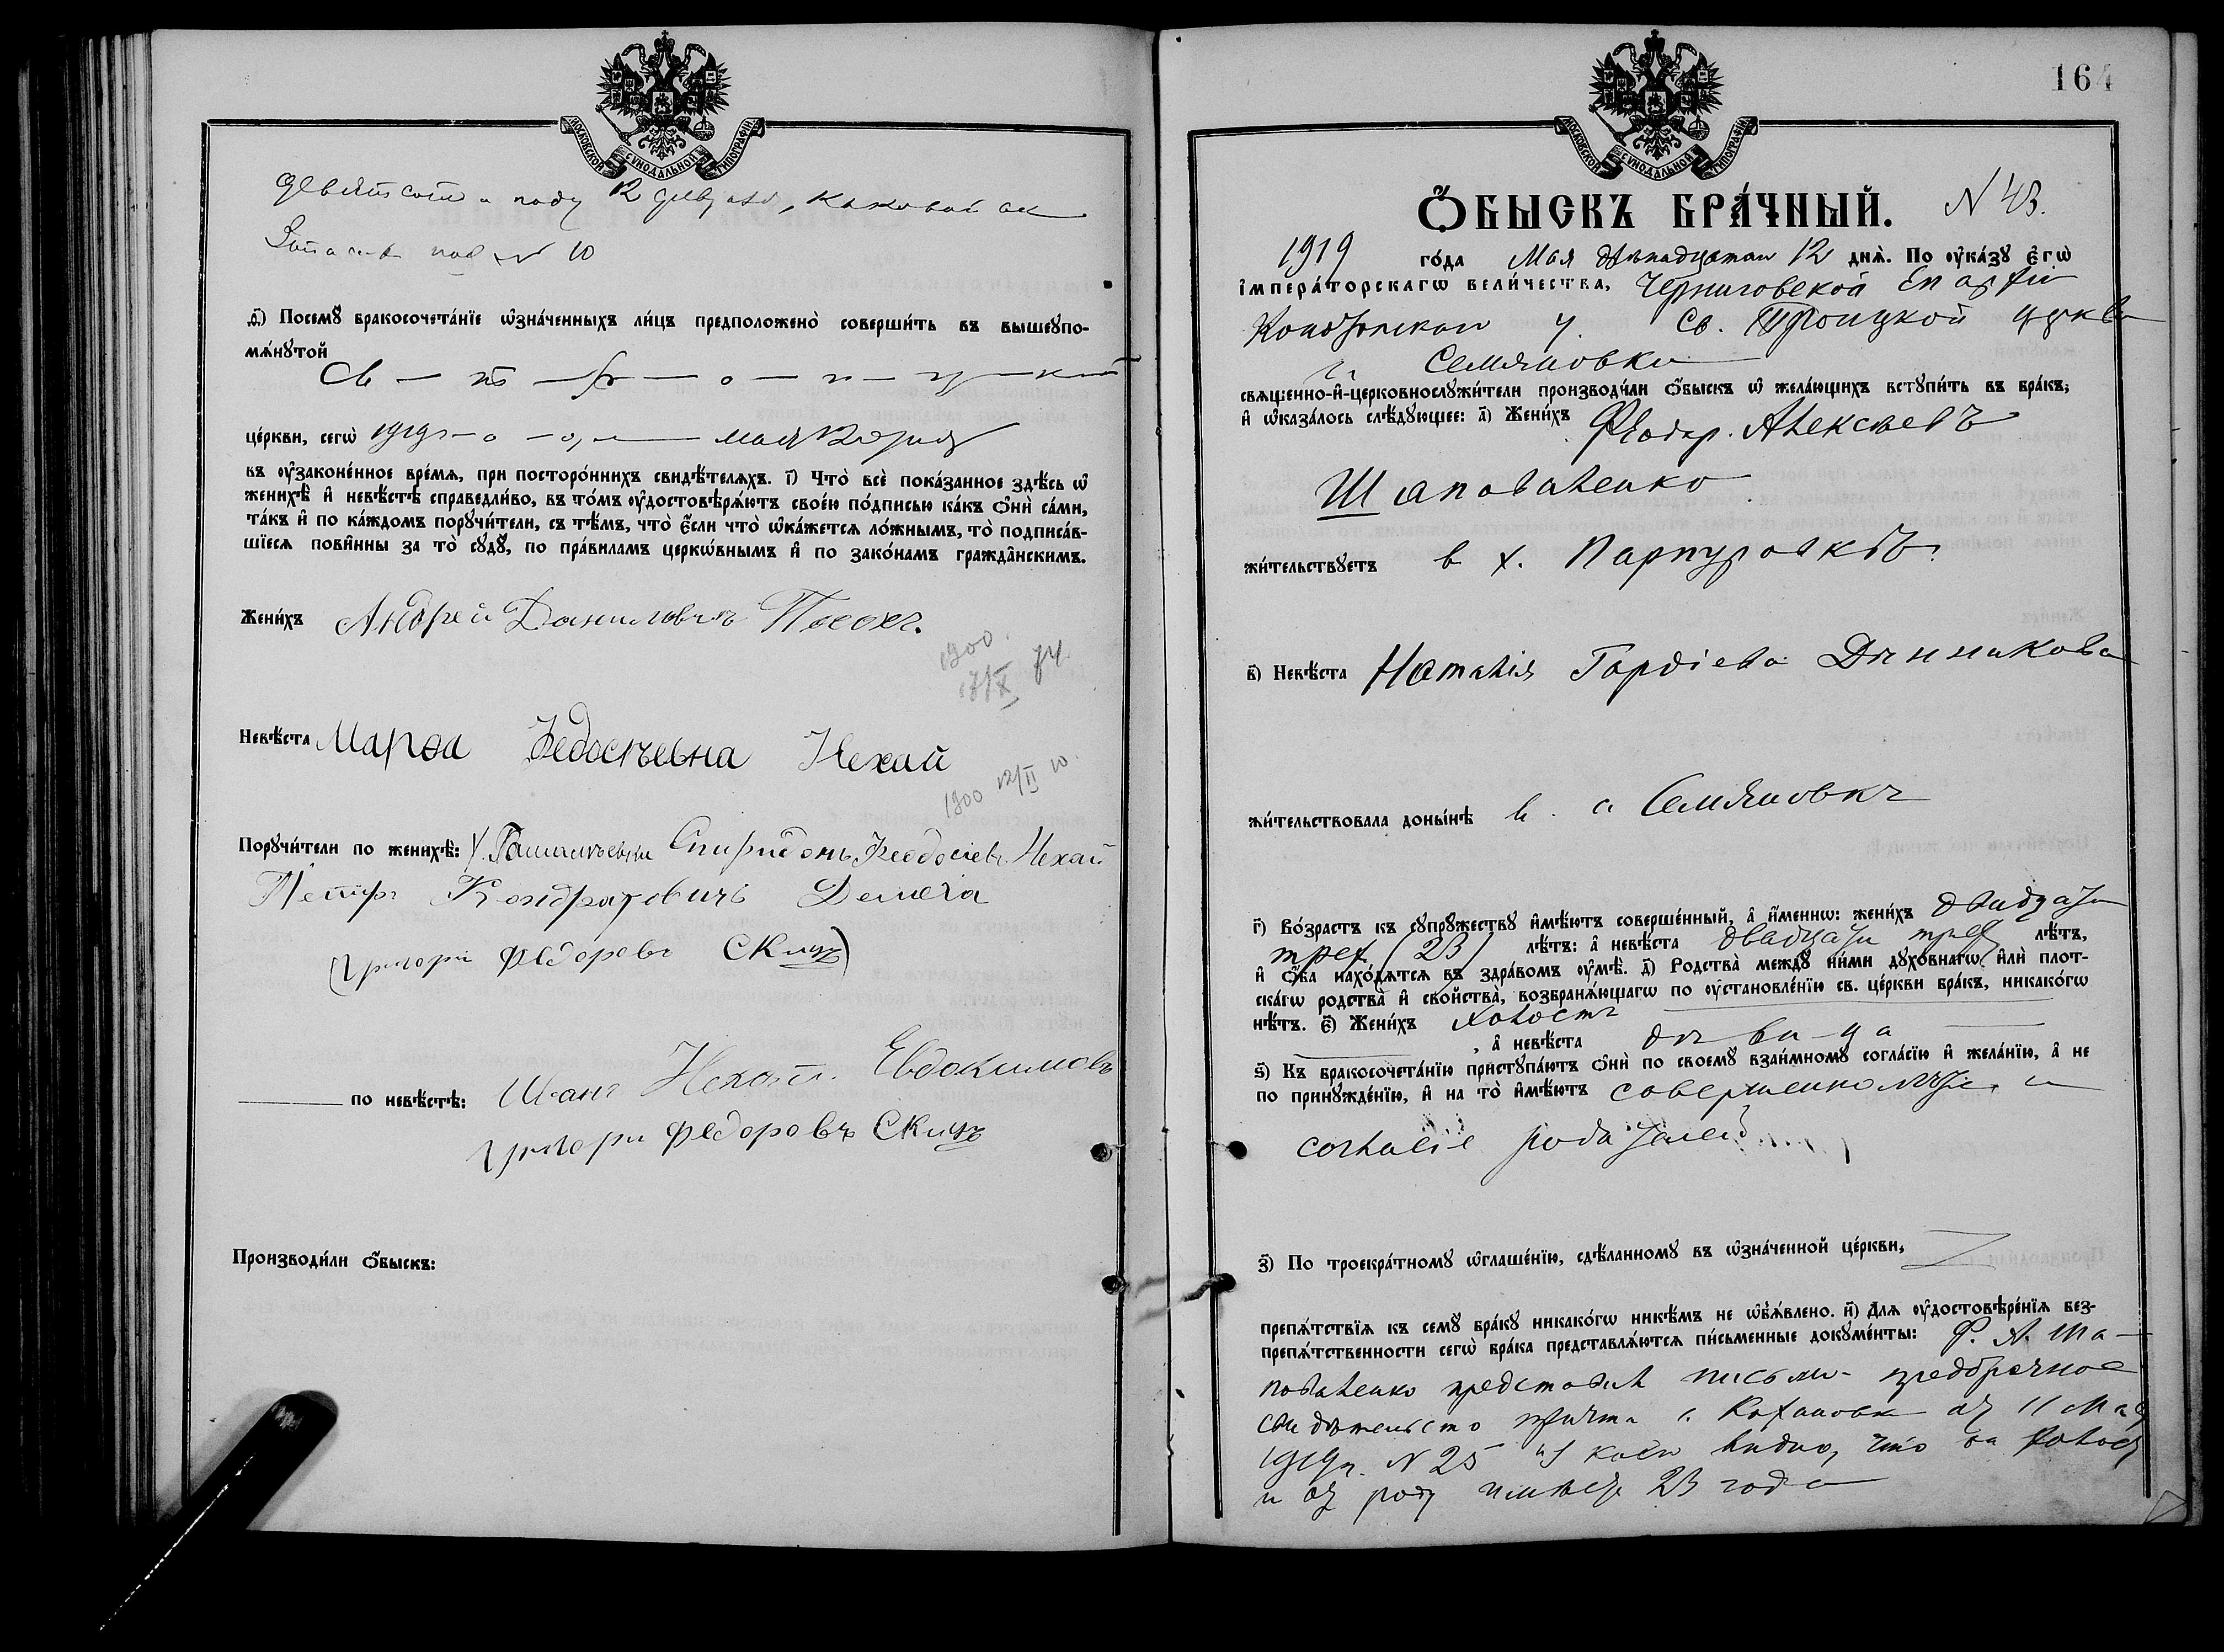 МОСКОВСКОЙ СѴНОДАЛЬНОЙ ТИПОГРАФІИ
12
под № 10
д҃) Посемꙋ бракосочета́нїе ѡ҆зна́ченныхъ ли́цъ предположено̀ соверши́ть въ вышеꙋпо-
мѧ́нꙋтой
Св - т - р - о - и - ц - кой
це́ркви, сегѡ̀ 1919 мая 12
въ ᲂу҆законе́нное вре́мѧ, при посторо́ннихъ свидѣ́телѧхъ. і҃) Что̀ всѐ пока́занное здѣ́сь ѡ҆
женихѣ̀ и҆ невѣ́стѣ справедли́во, въ то́мъ ᲂу҆достовѣрѧ́ютъ свое́ю по́дписью ка́къ ѻ҆нѝ са́ми,
та́къ и҆ по ка́ждомъ порꙋчи́тели, съ тѣ́мъ, что̀ є҆́сли что̀ ѡ҆ка́жетсѧ ло́жнымъ, то̀ подписа́в-
шїесѧ пови̂нны за то̀ сꙋдꙋ̀, по пра́виламъ церкѡ́внымъ и҆ по зако́намъ гражда̂нскимъ.
Жени́хъ Андрей Даниловичъ Посохъ.
1900
17/X 74
Невѣ́ста Марѳа Федосѣевна Нехай
1900 12/II 10.
Порꙋчи́тели по женихѣ̀: Спиридонъ Феодосіевъ Нехай
Петръ Кондратовичъ Демеха
(Григорий Федоровъ СКицъ)
по невѣ́стѣ: Иванъ Нехай Евдокимовъ
Григори Федоровъ СКицъ
Производи́ли ѻ҆́быскъ:
164
МОСКОВСКОЙ СѴНОДАЛЬНОЙ ТИПОГРАФІИ
Ѻ҆́БЫСКЪ БРА́ЧНЫЙ. N 43.
1919 го́да Мая двѣнадцатаго 12 днѧ̀. По ᲂу҆ка́зꙋ є҆гѡ̀
і҆мпера́торскагѡ вели́чества, Черниговской Епархіи
Конотопскаго у. Св. Троицкой церкви
с. Семяновки
свѧще́нно-и҆-церковнослꙋжи́тели производи́ли ѻ҆́быскъ ѡ҆ жела́ющихъ встꙋпи́ть въ бра́къ;
и҆ ѡ҆каза́лось слѣ́дꙋющее: а҃) Жени́хъ Ѳеодор. Алексѣевъ
Шаповаленко
жи́тельствꙋетъ в х. Парпуровкѣ.
в҃) Невѣ́ста Наталія Гордіева Дѣнникова
жи́тельствовала доны́нѣ в. с Семяновкѣ
г҃) Во́зрастъ къ сꙋпрꙋ́жествꙋ и҆мѣ́ютъ соверше́нный, а҆ и҆́менно: жени́хъ двадцати
трех (23) лѣ́тъ: а҆ невѣ́ста двадцати трех лѣ́тъ,
и҆ ѻ҆́ба нахо́дѧтсѧ въ здра́вомъ ᲂу҆мѣ̀. д҃) Родства̀ междꙋ̀ ни́ми дꙋхо́внагѡ и҆лѝ плот-
ска́гѡ родства̀ и҆ сво́йства̀, возбранѧ́ющагѡ по ᲂу҆становле́нїю св. це́ркви бра́къ, никако́гѡ
нѣ́тъ. є҃) Жени́хъ холостъ
, а҆ невѣ́ста дѣвица
ѕ҃) Къ бракосочета́нїю пристꙋпа́ютъ ѻ҆нѝ по своемꙋ̀ взаи́мномꙋ согла́сїю и҆ жела́нїю, а҆ не
по принꙋжде́нїю, и҆ на то̀ и҆мѣ́ютъ совершеннолѣтіе и
согласіе родителей
з҃) По троекра́тномꙋ ѡ҆глаше́нїю, сдѣ́ланномꙋ въ ѡ҆зна́ченной це́ркви,
препѧ́тствїѧ къ семꙋ̀ бра́кꙋ никако́гѡ никѣ́мъ не ѡ҆б̾ѧ́влено. и҃) Длѧ ᲂу҆достовѣре́нїѧ без-
препѧ́тственности сегѡ̀ бра́ка представлѧ́ютсѧ пи́сьменные докꙋме́нты: Ф. А. Ша-
поваленко представил письм. предбрачное
свидѣтельство причта с. Кохановки от 11 Мая
1919 г. N 25 из коего видно, что он холост
и от роду имѣет 23 года